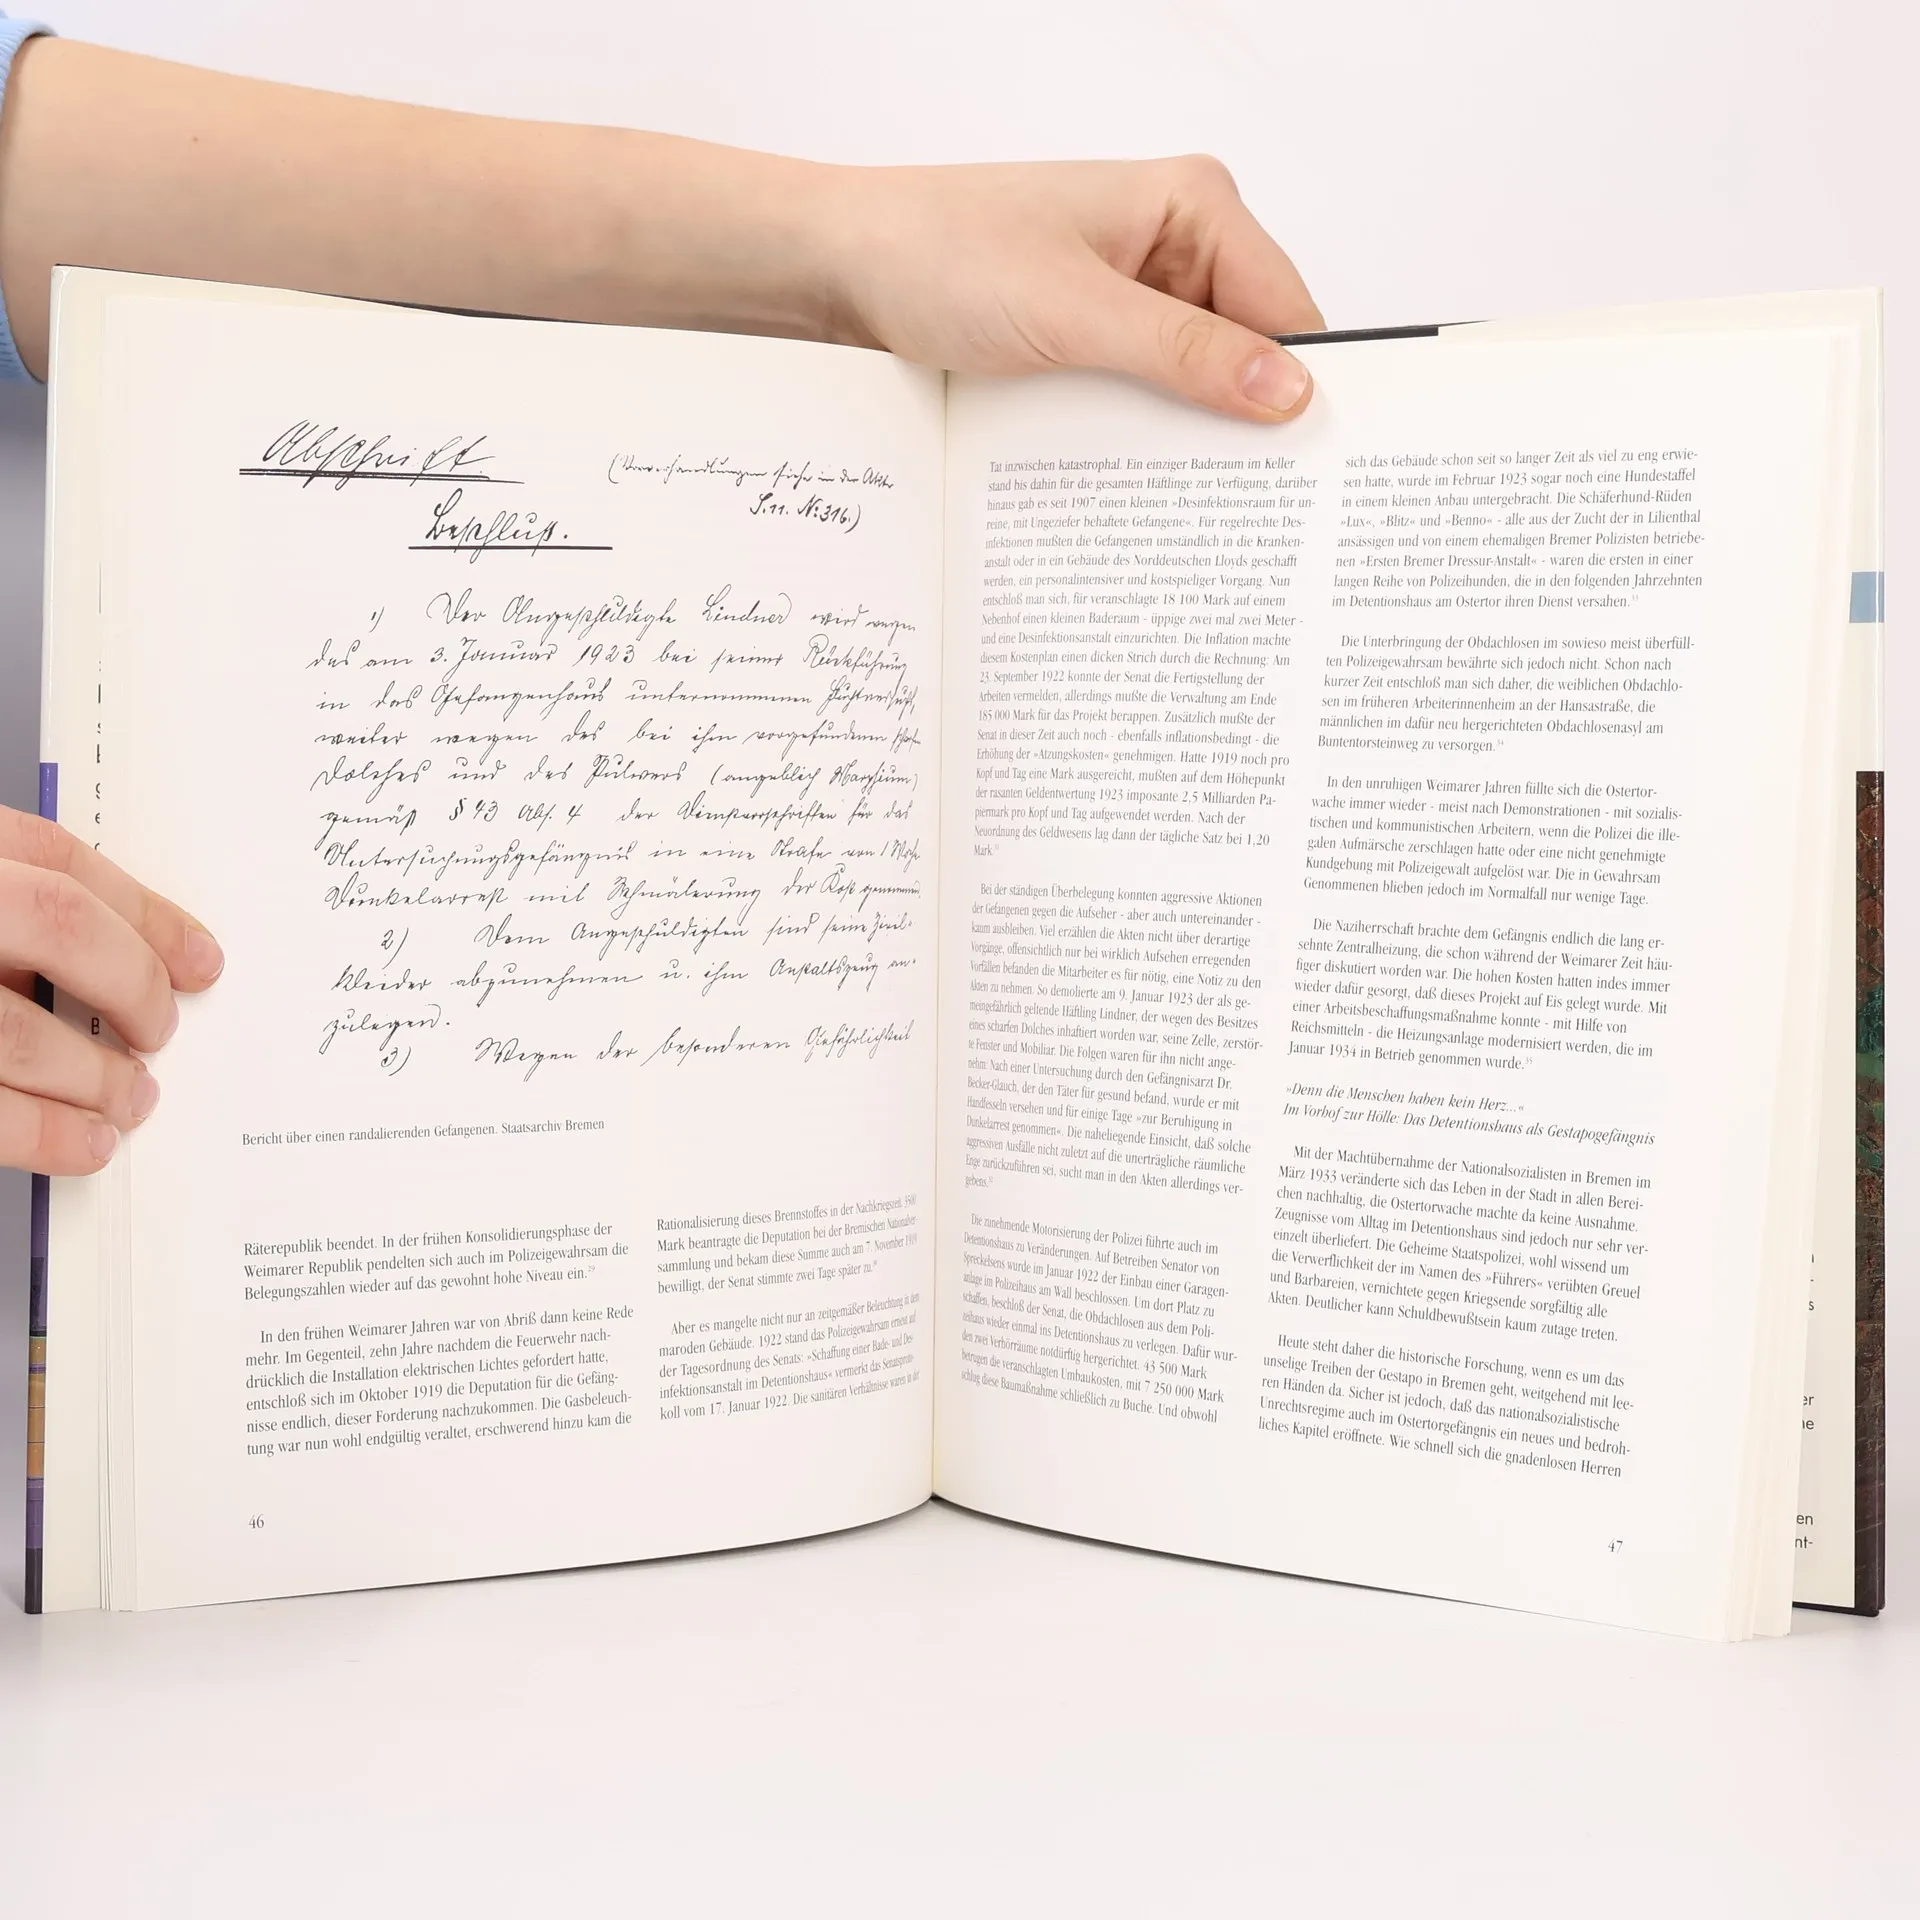 Abschrift.
(Vorverhandlungen siehe in der Akte
S.11. No: 316.)
Beschluß.
1) Der Angeschuldigte Lindner wird wegen
des am 3. Januar 1923 bei seiner Rückführung
in das Gefangenhaus unternommenen Fluchtversuchs,
weiter wegen des bei ihm vorgefundenen scharfen
Dolches und des Pulvers (angeblich Morphium)
gemäß § 43 Abs. 4 der Dienstvorschriften für das
Untersuchungsgefängnis in eine Strafe von 1 Woche
Dunkelarrest mit Schmälerung der Kost genommen.
2) Dem Angeschuldigten sind seine Zivil-
kleider abzunehmen u. ihm Anstaltszeug an-
zulegen.
3) Wegen der besonderen Gefährlichkeit
Bericht über einen randalierenden Gefangenen. Staatsarchiv Bremen
Räterepublik beendet. In der frühen Konsolidierungsphase der
Weimarer Republik pendelten sich auch im Polizeigewahrsam die
Belegungszahlen wieder auf das gewohnt hohe Niveau ein.29
In den frühen Weimarer Jahren war von Abriß dann keine Rede
mehr. Im Gegenteil, zehn Jahre nachdem die Feuerwehr nach-
drücklich die Installation elektrischen Lichtes gefordert hatte,
entschloß sich im Oktober 1919 die Deputation für die Gefäng-
nisse endlich, dieser Forderung nachzukommen. Die Gasbeleuch-
tung war nun wohl endgültig veraltet, erschwerend hinzu kam die
Rationalisierung dieses Brennstoffes in der Nachkriegszeit. 5500
Mark beantragte die Deputation bei der Bremischen Nationalver
sammlung und bekam diese Summe auch am 7. November 1919
bewilligt, der Senat stimmte zwei Tage später zu.30
Aber es mangelte nicht nur an zeitgemäßer Beleuchtung in dem
maroden Gebäude. 1922 stand das Polizeigewahrsam erneut auf
der Tagesordnung des Senats: »Schaffung einer Bade- und Des-
infektionsanstalt im Detentionshaus« vermerkt das Senatsproto-
koll vom 17. Januar 1922. Die sanitären Verhältnisse waren in der
46
Tat inzwischen katastrophal. Ein einziger Baderaum im Keller
stand bis dahin für die gesamten Häftlinge zur Verfügung, darüber
hinaus gab es seit 1907 einen kleinen »Desinfektionsraum für un-
reine, mit Ungeziefer behaftete Gefangene«. Für regelrechte Des-
infektionen mußten die Gefangenen umständlich in die Kranken-
anstalt oder in ein Gebäude des Norddeutschen Lloyds geschafft
werden, ein personalintensiver und kostspieliger Vorgang. Nun
entschloß man sich, für veranschlagte 18 100 Mark auf einem
Nebenhof einen kleinen Baderaum - üppige zwei mal zwei Meter -
und eine Desinfektionsanstalt einzurichten. Die Inflation machte
diesem Kostenplan einen dicken Strich durch die Rechnung: Am
23. September 1922 konnte der Senat die Fertigstellung der
Arbeiten vermelden, allerdings mußte die Verwaltung am Ende
185 000 Mark für das Projekt berappen. Zusätzlich mußte der
Senat in dieser Zeit auch noch - ebenfalls inflationsbedingt - die
Erhöhung der »Atzungskosten« genehmigen. Hatte 1919 noch pro
Kopf und Tag eine Mark ausgereicht, mußten auf dem Höhepunkt
der rasanten Geldentwertung 1923 imposante 2,5 Milliarden Pa-
piermark pro Kopf und Tag aufgewendet werden. Nach der
Neuordnung des Geldwesens lag dann der tägliche Satz bei 1,20
Mark.31
Bei der ständigen Überbelegung konnten aggressive Aktionen
der Gefangenen gegen die Aufseher - aber auch untereinander -
kaum ausbleiben. Viel erzählen die Akten nicht über derartige
Vorgänge, offensichtlich nur bei wirklich Aufsehen erregenden
Vorfällen befanden die Mitarbeiter es für nötig, eine Notiz zu den
Akten zu nehmen. So demolierte am 9. Januar 1923 der als ge-
meingefährlich geltende Häftling Lindner, der wegen des Besitzes
eines scharfen Dolches inhaftiert worden war, seine Zelle, zerstör-
te Fenster und Mobiliar. Die Folgen waren für ihn nicht ange-
nehm: Nach einer Untersuchung durch den Gefängnisarzt Dr.
Becker-Glauch, der den Täter für gesund befand, wurde er mit
Handfesseln versehen und für einige Tage »zur Beruhigung in
Dunkelarrest genommen«. Die naheliegende Einsicht, daß solche
aggressiven Ausfälle nicht zuletzt auf die unerträgliche räumliche
Enge zurückzuführen sei, sucht man in den Akten allerdings ver-
gebens.32
Die zunehmende Motorisierung der Polizei führte auch im
Detentionshaus zu Veränderungen. Auf Betreiben Senator von
Spreckelsens wurde im Januar 1922 der Einbau einer Garagen-
anlage im Polizeihaus am Wall beschlossen. Um dort Platz zu
schaffen, beschloß der Senat, die Obdachlosen aus dem Poli-
zeihaus wieder einmal ins Detentionshaus zu verlegen. Dafür wur-
den zwei Verhörräume notdürftig hergerichtet. 43 500 Mark
betrugen die veranschlagten Umbaukosten, mit 7 250 000 Mark
schlug diese Baumaßnahme schließlich zu Buche. Und obwohl
sich das Gebäude schon seit so langer Zeit als viel zu eng erwie-
sen hatte, wurde im Februar 1923 sogar noch eine Hundestaffel
in einem kleinen Anbau untergebracht. Die Schäferhund-Rüden
»Lux«, »Blitz« und »Benno« - alle aus der Zucht der in Lilienthal
ansässigen und von einem ehemaligen Bremer Polizisten betriebe-
nen »Ersten Bremer Dressur-Anstalt« - waren die ersten in einer
langen Reihe von Polizeihunden, die in den folgenden Jahrzehnten
im Detentionshaus am Ostertor ihren Dienst versahen.33
Die Unterbringung der Obdachlosen im sowieso meist überfüll-
ten Polizeigewahrsam bewährte sich jedoch nicht. Schon nach
kurzer Zeit entschloß man sich daher, die weiblichen Obdachlo-
sen im früheren Arbeiterinnenheim an der Hansastraße, die
männlichen im dafür neu hergerichteten Obdachlosenasyl am
Buntentorsteinweg zu versorgen.34
In den unruhigen Weimarer Jahren füllte sich die Ostertor-
wache immer wieder - meist nach Demonstrationen - mit sozialis-
tischen und kommunistischen Arbeitern, wenn die Polizei die ille-
galen Aufmärsche zerschlagen hatte oder eine nicht genehmigte
Kundgebung mit Polizeigewalt aufgelöst war. Die in Gewahrsam
Genommenen blieben jedoch im Normalfall nur wenige Tage.
Die Naziherrschaft brachte dem Gefängnis endlich die lang er-
sehnte Zentralheizung, die schon während der Weimarer Zeit häu-
figer diskutiert worden war. Die hohen Kosten hatten indes immer
wieder dafür gesorgt, daß dieses Projekt auf Eis gelegt wurde. Mit
einer Arbeitsbeschaffungsmaßnahme konnte - mit Hilfe von
Reichsmitteln - die Heizungsanlage modernisiert werden, die im
Januar 1934 in Betrieb genommen wurde.35
»Denn die Menschen haben kein Herz...«
Im Vorhof zur Hölle: Das Detentionshaus als Gestapogefängnis
Mit der Machtübernahme der Nationalsozialisten in Bremen im
März 1933 veränderte sich das Leben in der Stadt in allen Berei-
chen nachhaltig, die Ostertorwache machte da keine Ausnahme.
Zeugnisse vom Alltag im Detentionshaus sind jedoch nur sehr ver-
einzelt überliefert. Die Geheime Staatspolizei, wohl wissend um
die Verwerflichkeit der im Namen des »Führers« verübten Greuel
und Barbareien, vernichtete gegen Kriegsende sorgfältig alle
Akten. Deutlicher kann Schuldbewußtsein kaum zutage treten.
Heute steht daher die historische Forschung, wenn es um das
unselige Treiben der Gestapo in Bremen geht, weitgehend mit lee-
ren Händen da. Sicher ist jedoch, daß das nationalsozialistische
Unrechtsregime auch im Ostertorgefängnis ein neues und bedroh-
liches Kapitel eröffnete. Wie schnell sich die gnadenlosen Herren
47